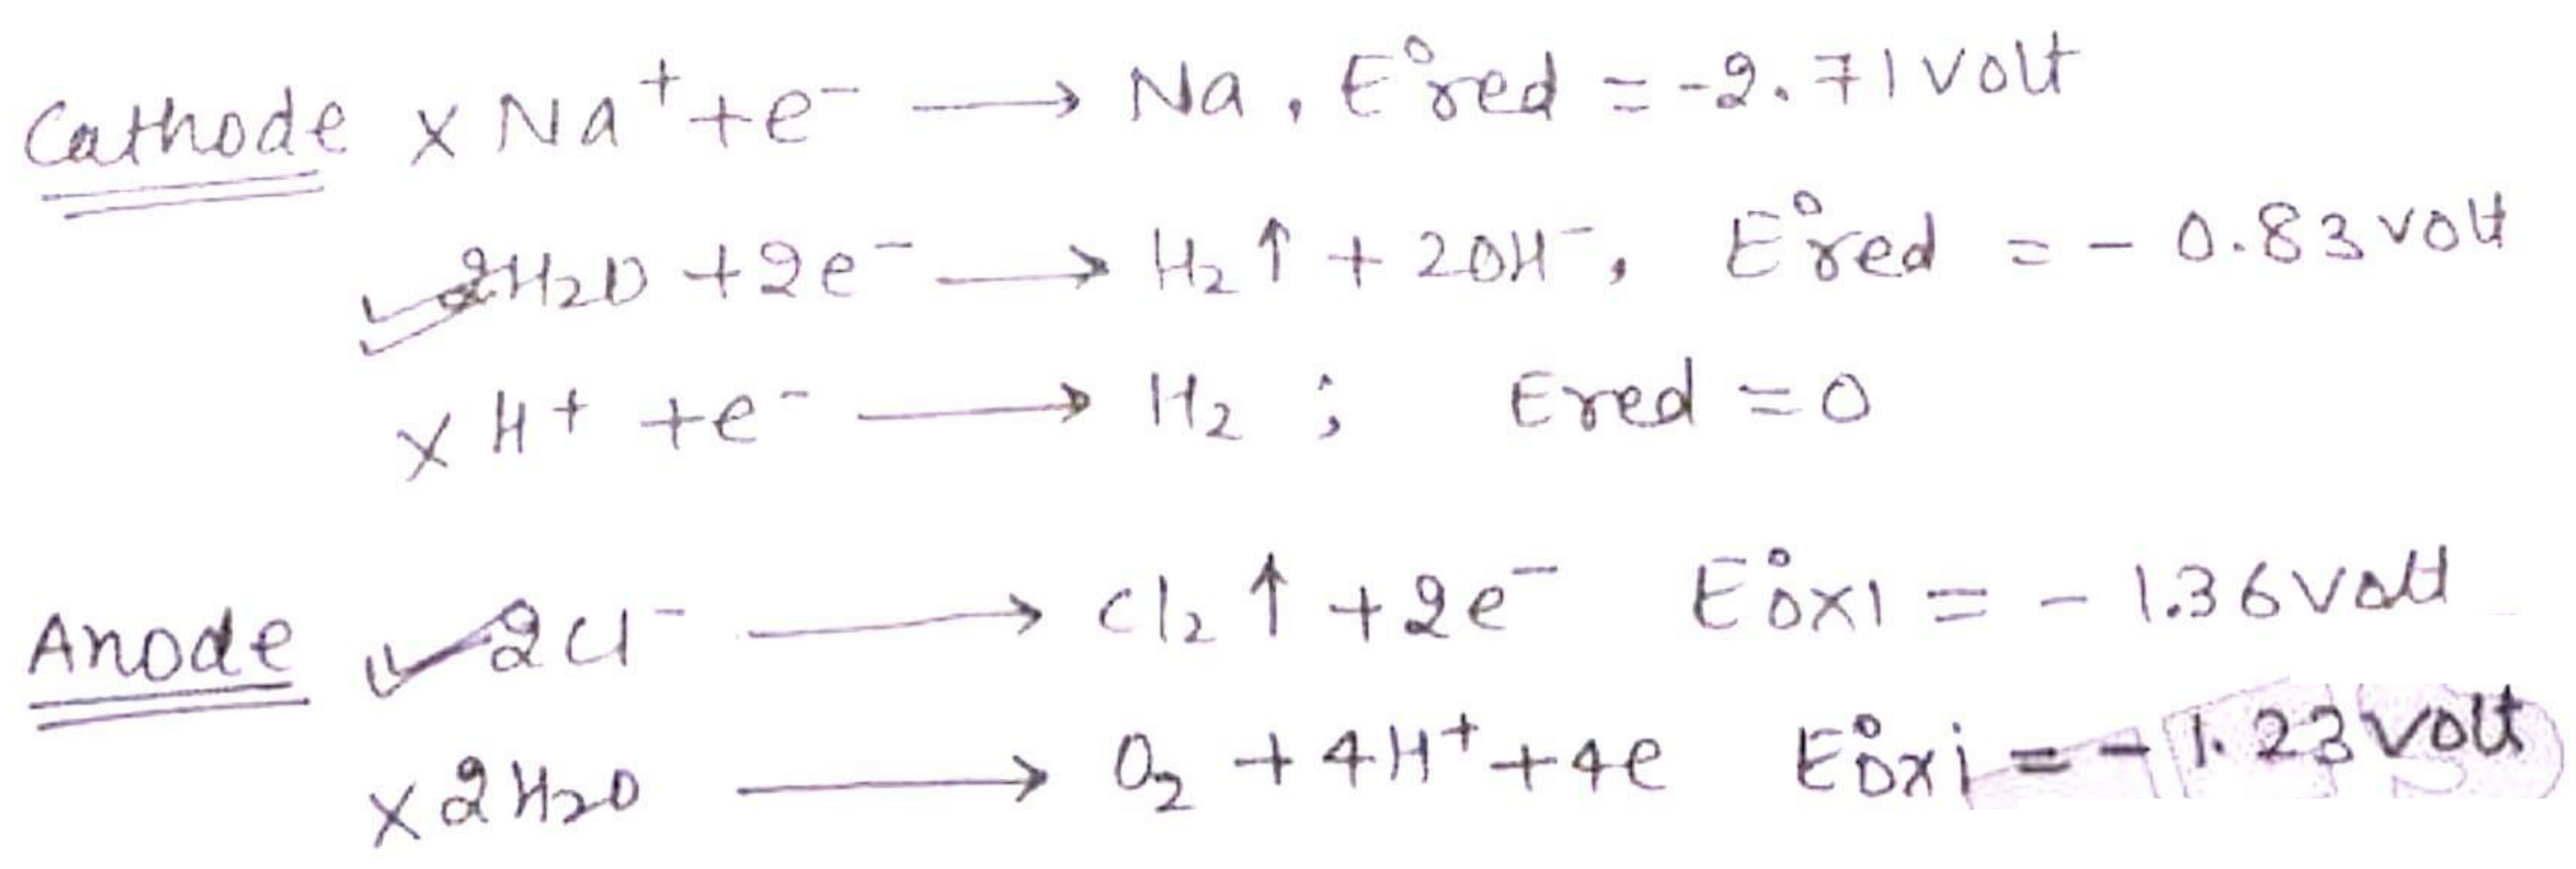 Cathode × Na⁺ + e⁻ ⟶ Na, E°red = -2.71 volt
✓ 2H₂O + 2e⁻ ⟶ H₂↑ + 2OH⁻, E°red = - 0.83 volt
× H⁺ + e⁻ ⟶ H₂ ; Ered = 0
Anode ✓ 2Cl⁻ ⟶ Cl₂↑ + 2e⁻ E°oxi = - 1.36 volt
× 2H₂O ⟶ O₂ + 4H⁺ + 4e E°oxi = - 1.23 volt